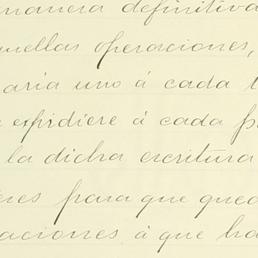 manera definitiva
uellas operaciones,
aria uno á cada
expidiere á cada
la dicha escritura
res para que qued
aciones á que ha